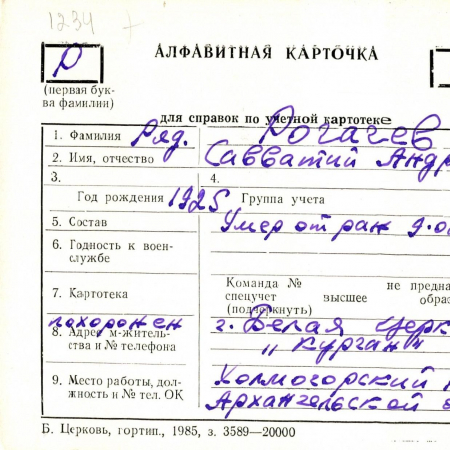 1234
Р
АЛФАВИТНАЯ КАРТОЧКА
(первая бук-
ва фамилии)
для справок по учетной картотеке
1. Фамилия Ряд. Рогачев
2. Имя, отчество Савватий Андр
3. 4.
Год рождения 1925 Группа учета
5. Состав Умер от ран 9.0
6. Годность к воен-
службе
Команда № не предна
7. Картотека спецучет высшее образ
(подчеркнуть)
похоронен г. Белая Церк
8. Адрес м-житель-
ства и № телефона „Курган"
9. Место работы, дол- Холмогорский
жность и № тел. ОК Архангельской о
Б. Церковь, гортип., 1985, з. 3589—20000